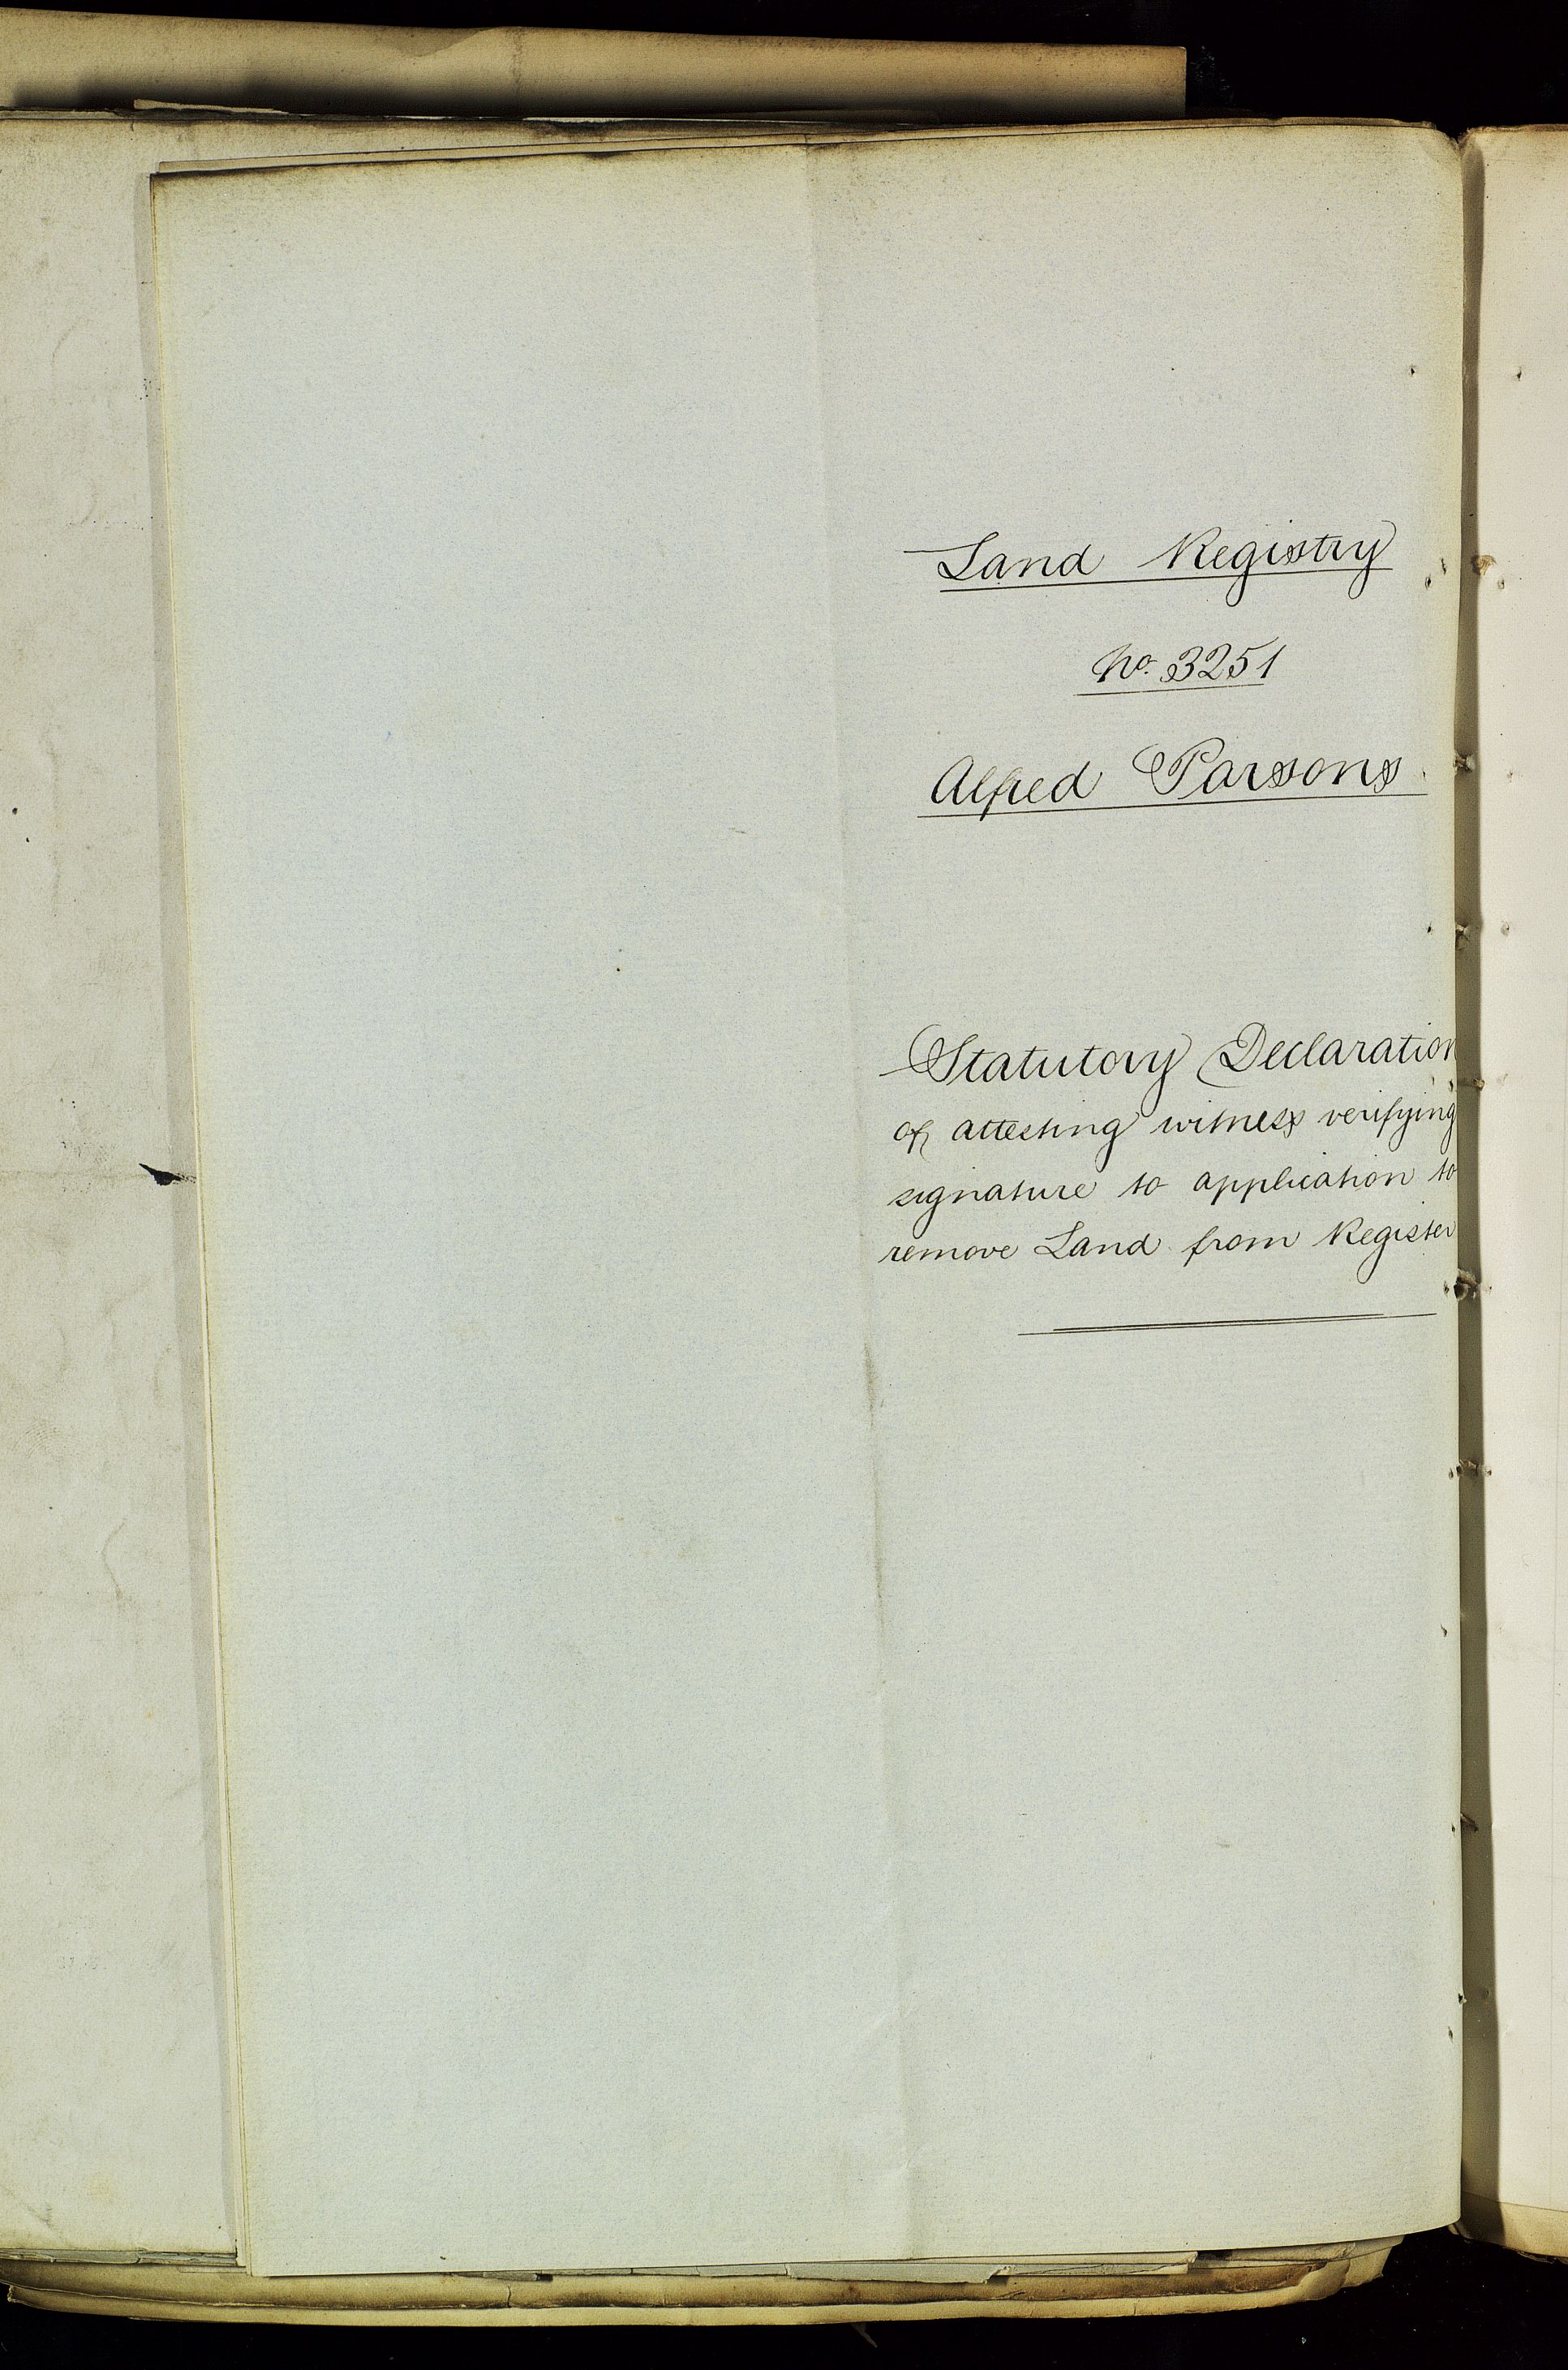 Land Registry
No. 3251
Alfred Parsons
Statutory Declaration
of attesting witness verifying
signature to application to
remove Land from Register